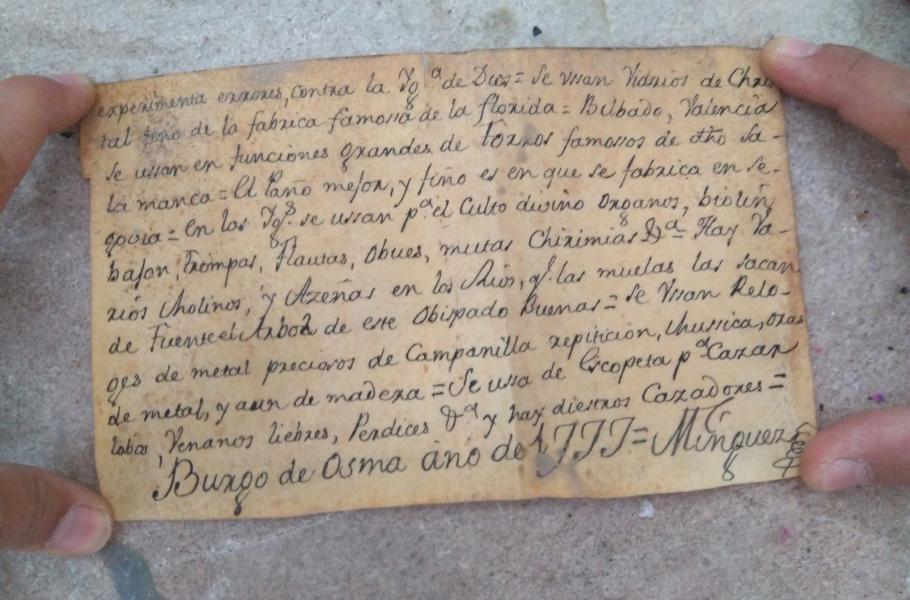 experimenta errores, contra la Ygª de Dios = Se ussan Vidrios de Chris
tal fino de la fabrica famossa de la florida = Bilbado, Valencia
Se ussan en funciones grandes de Torros famossos de dho Sa-
la manca = El Paño mejor, y fiño es en que se fabrica en Se-
govia = en las Ygs. se ussan pª el Culto diviño Organos, biolin,
bajon, Trompas, Flautas, Obues, mutas Chirimias &ª = Hay Va-
rios Molinos, y Azeñas en los Rios, q. las muelas las sacan
de Fuente el Arbol de este Obispado Buenas = Se Ussan Relo-
ges de metal preciosos de Campanilla repiticion, Mussica, oras
de metal, y aun de madera = Se ussa de Escopeta pª Cazar
lobos, Venanos liebres, Perdices &ª y hay diestros Cazadores =
Burgo de Osma año de 1777 = Minguez